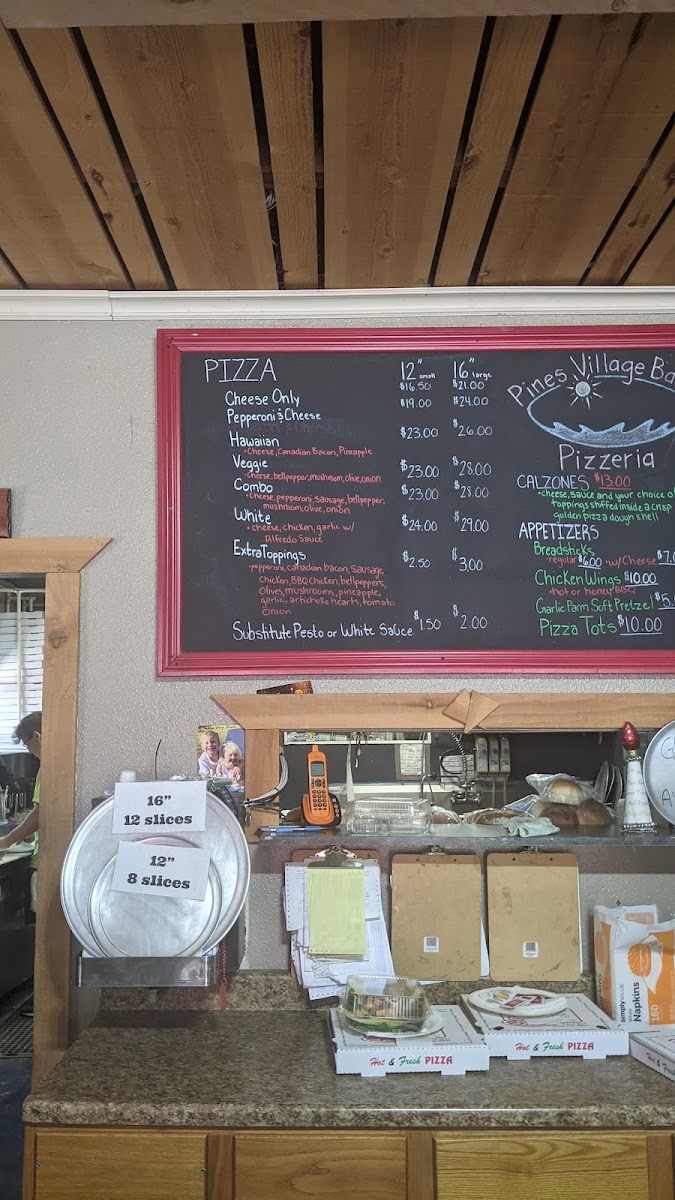 PIZZA 12" small 16" large
$16.50 $21.00
Cheese Only $19.00 $24.00
Pepperoni & Cheese
Hawaiian $23.00 $26.00
• Cheese, Canadian Bacon, Pineapple
Veggie $23.00 $28.00
• cheese, bellpepper, mushroom, olive, onion
Combo $23.00 $28.00
• Cheese, pepperoni, sausage, bellpepper,
mushroom, olive, onion
White $24.00 $29.00
• cheese, chicken, garlic w/
Alfredo Sauce
Extra Toppings $2.50 $3.00
• pepperoni, canadian bacon, Sausage,
Chicken, BBQ Chicken, bellpeppers,
Olives, mushrooms, pineapple,
garlic, artichoke hearts, tomato,
onion
Substitute Pesto or White Sauce $1.50 $2.00
Pines Village Ba
Pizzeria
CALZONES $13.00
• cheese, sauce and your choice of
toppings stuffed inside a crisp
golden pizza dough shell
APPETIZERS
Breadsticks
• regular $6.00 • w/Cheese $7.0
Chicken Wings $10.00
• hot or honey BBQ
Garlic Parm Soft Pretzel $5.
Pizza Tots $10.00
16"
12 slices
12"
8 slices
simply VALUE
White
Napkins
160
Hot & Fresh PIZZA
Hot & Fresh PIZZA
Hot & Fresh